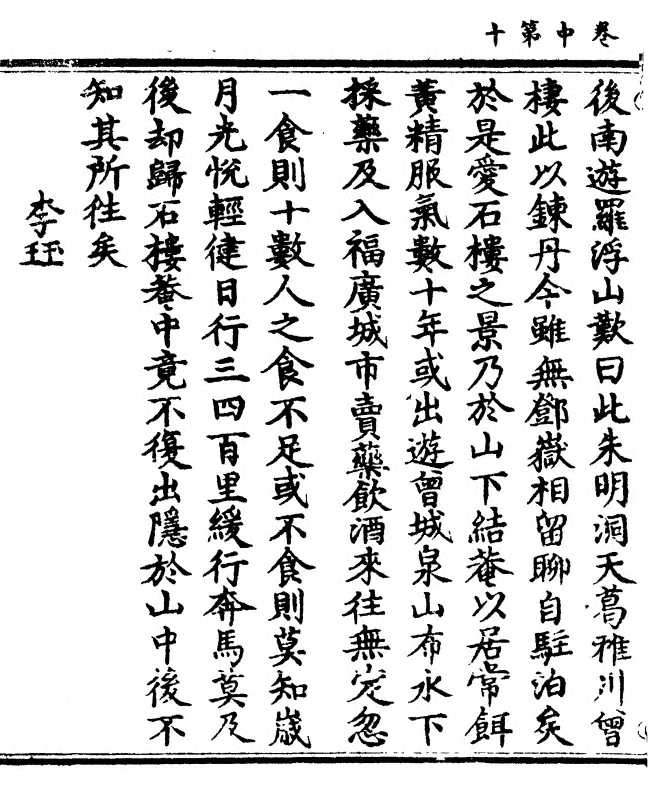 卷中第十
後南遊羅浮山歎曰此朱明洞天葛稚川曾
棲此以鍊丹今雖無鄧嶽相留聊自駐泊矣
於是愛石樓之景乃於山下結菴以居常餌
黃精服氣數十年或出遊曾城泉山布水下
採藥及入福廣城市賣藥飲酒來往無定忽
一食則十數人之食不足或不食則莫知歲
月光悅輕健日行三四百里緩行奔馬莫及
後却歸石樓菴中竟不復出隱於山中後不
知其所往矣
李珏